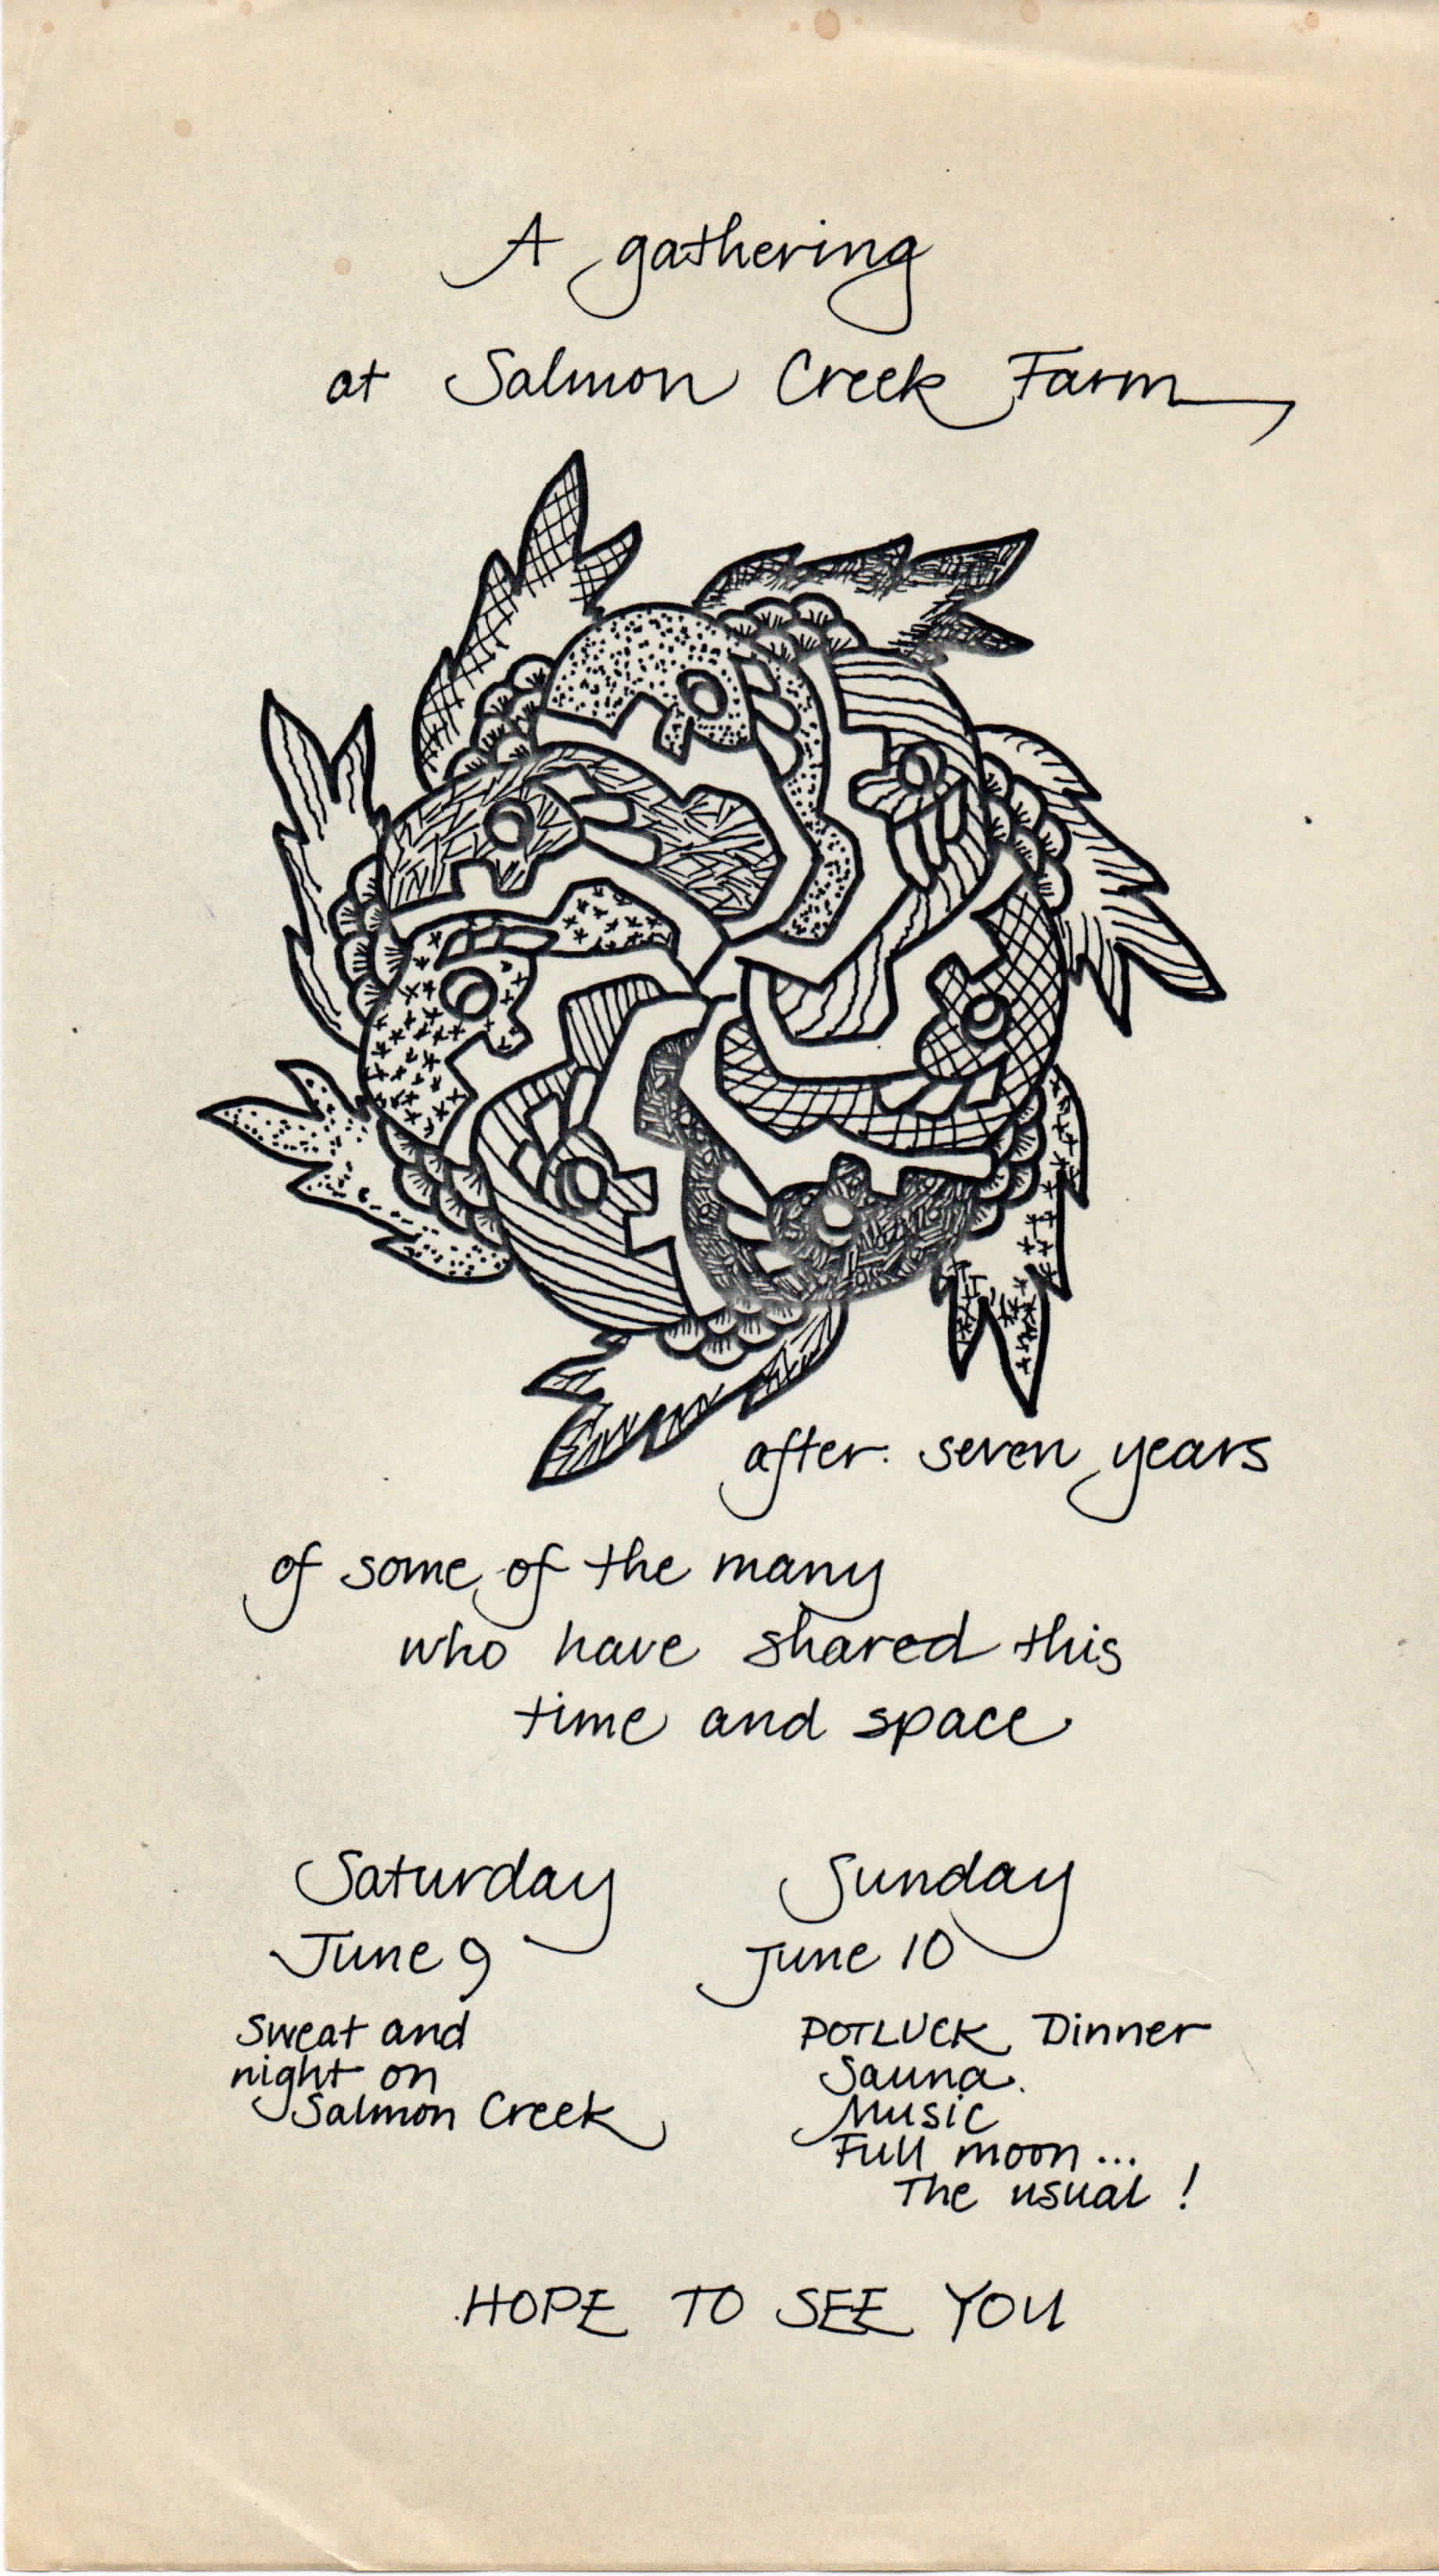 A gathering
at Salmon Creek Farm
after seven years
of some of the many
who have shared this
time and space
Saturday
June 9
Sweat and
night on
Salmon Creek
Sunday
June 10
POTLUCK Dinner
Sauna
Music
Full moon...
The usual !
HOPE TO SEE YOU